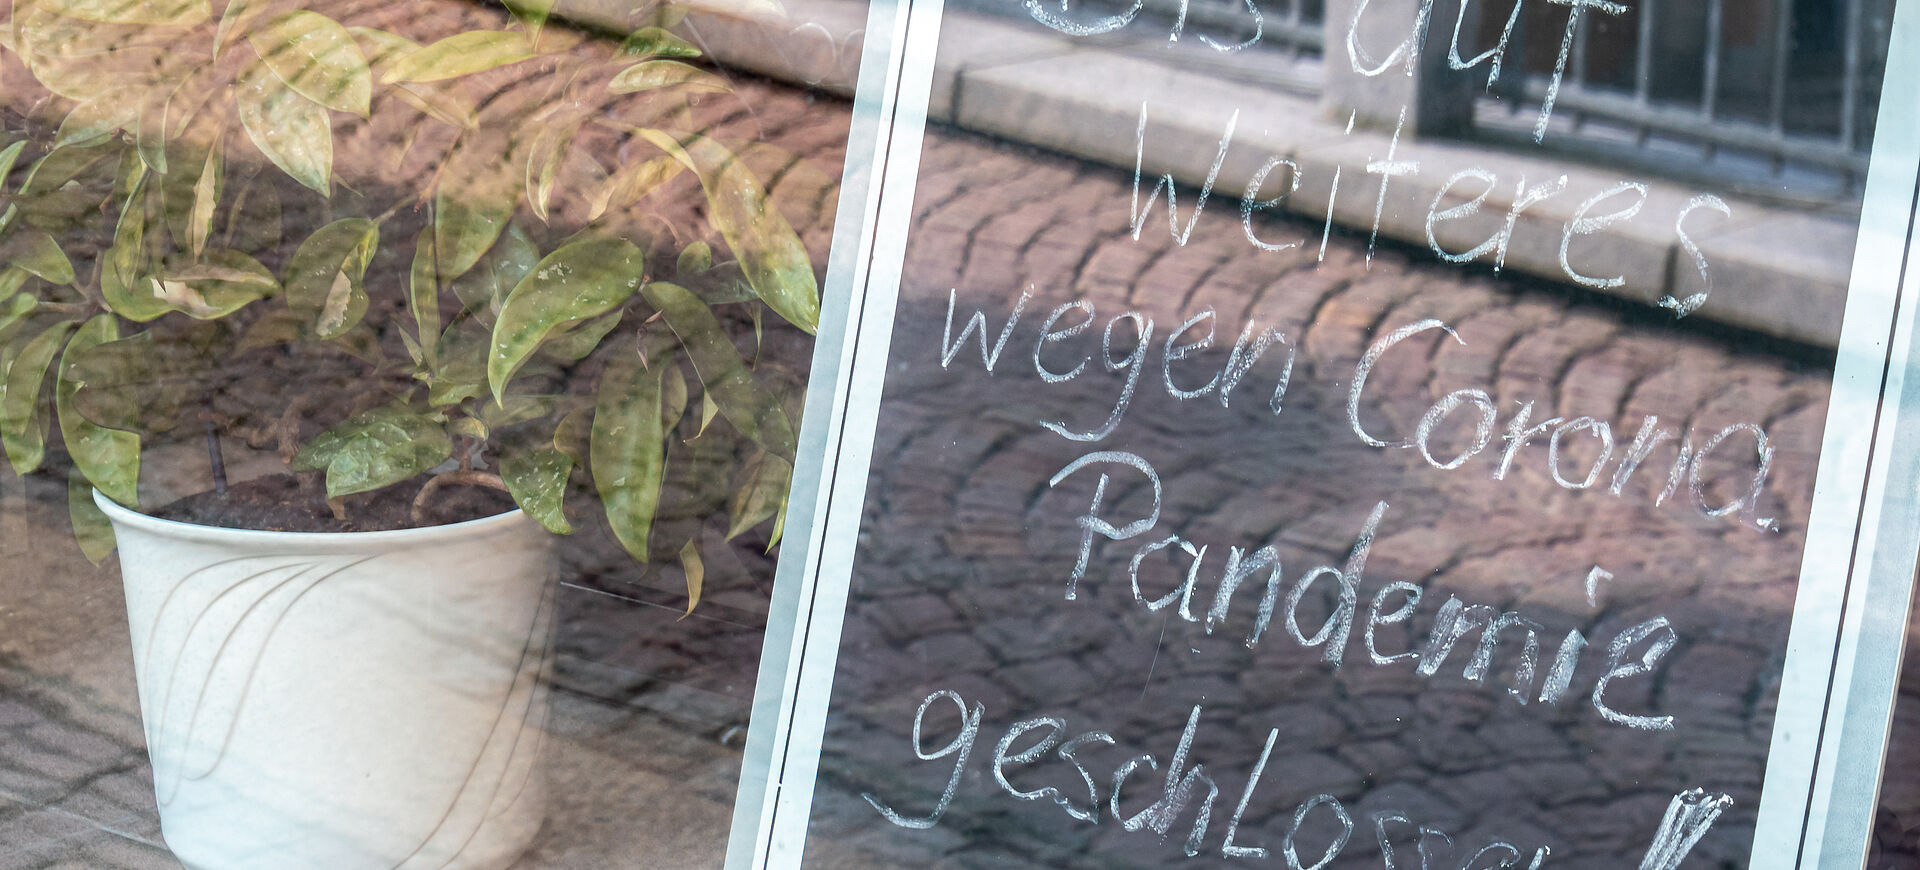 Bis auf
Weiteres
wegen Corona
Pandemie
geschlossen!!